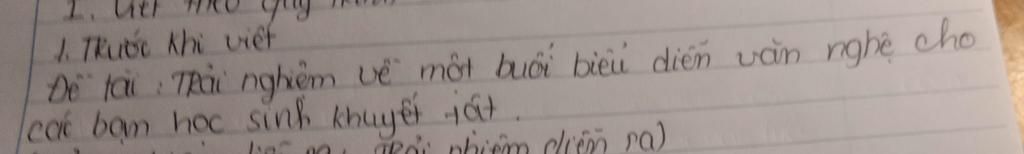 I. Viết theo quy trình
1. Trước khi viết
Đề tài: Trải nghiệm về một buổi biểu diễn văn nghệ cho
các bạn học sinh khuyết tật.
trải nghiệm diễn ra)